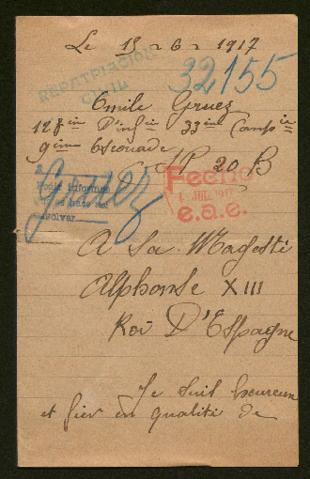 Le 15-6-1917
REPATRIACION
CIVIL
32155
Emile Gruez
128ième D'inf ie 33ième Comp ie
9ième Escouade
SP 20 B
Gruez
Pedir informes
volver
Fecha
JUL. 1917
e.a.e.
A Sa Magesté
Alphonse XIII
Roi D'Espagne
Je suit heureux
et fier en qualité de